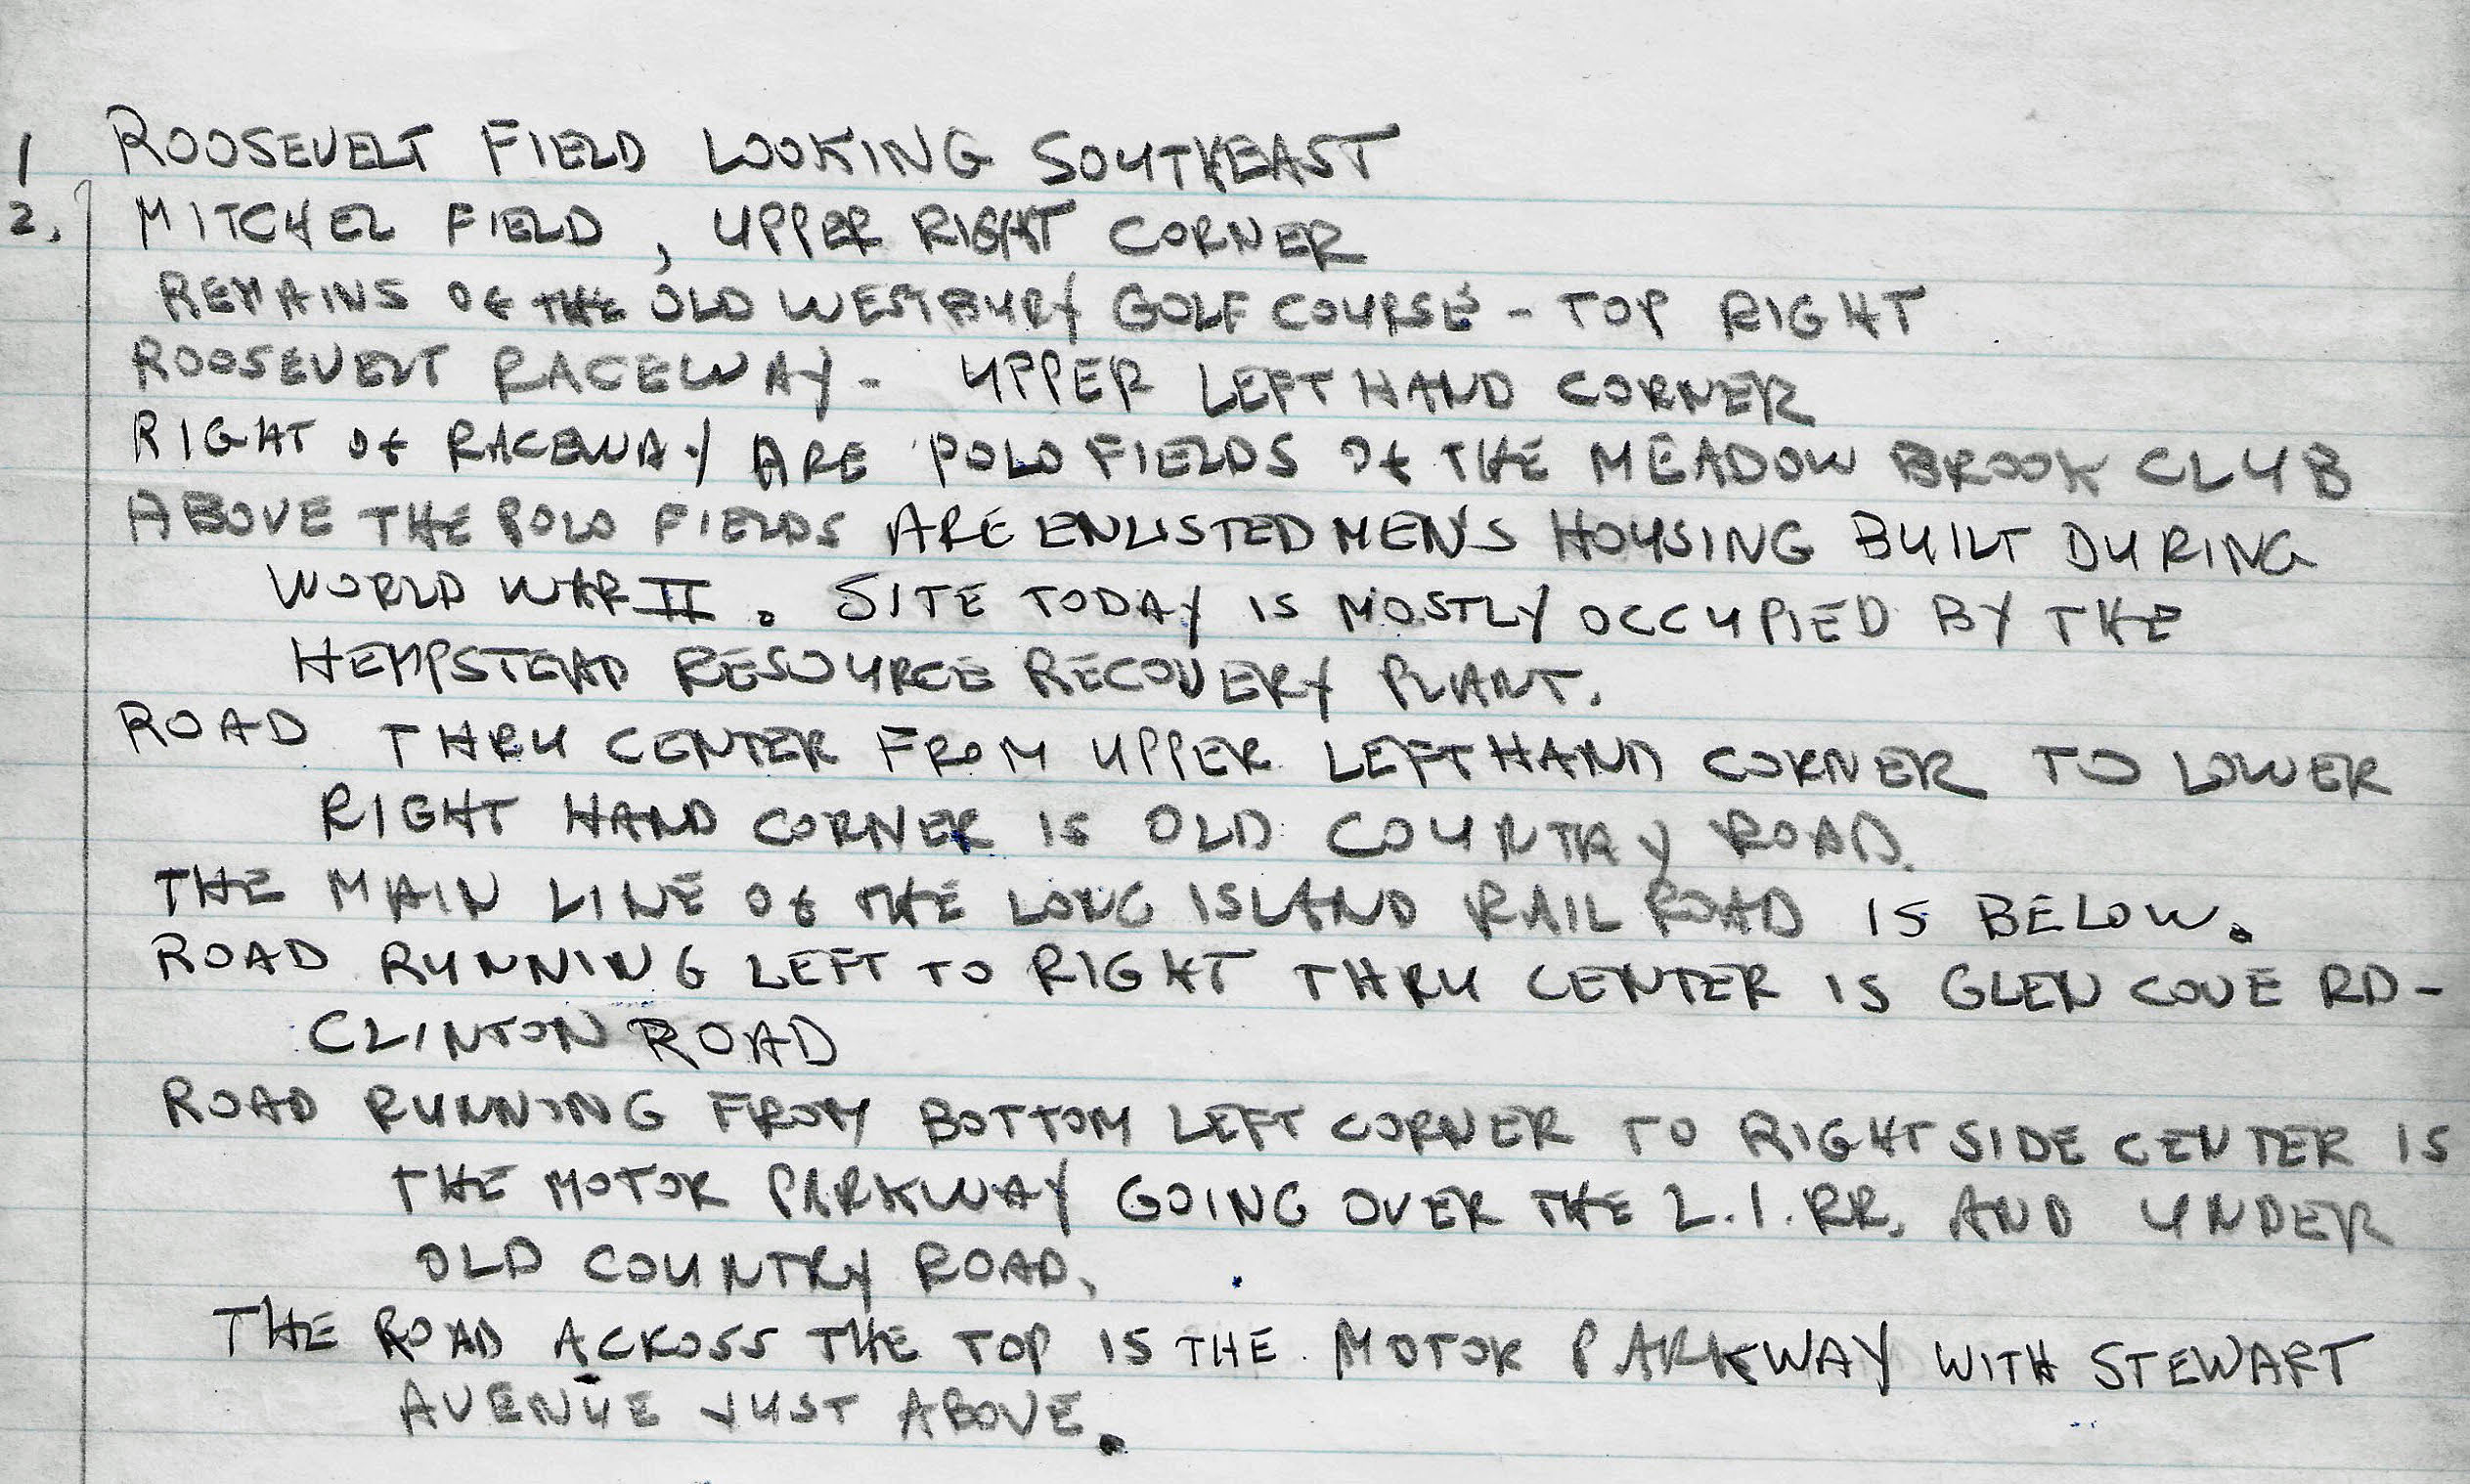 1 ROOSEVELT FIELD LOOKING SOUTHEAST
2. MITCHEL FIELD, UPPER RIGHT CORNER
REMAINS OF THE OLD WESTBURY GOLF COURSE - TOP RIGHT
ROOSEVELT RACEWAY - UPPER LEFT HAND CORNER
RIGHT OF RACEWAY ARE POLO FIELDS OF THE MEADOW BROOK CLUB
ABOVE THE POLO FIELDS ARE ENLISTED MEN'S HOUSING BUILT DURING
WORLD WAR II. SITE TODAY IS MOSTLY OCCUPIED BY THE
HEMPSTEAD RESOURCE RECOVERY PLANT.
ROAD THRU CENTER FROM UPPER LEFT HAND CORNER TO LOWER
RIGHT HAND CORNER IS OLD COUNTRY ROAD.
THE MAIN LINE OF THE LONG ISLAND RAIL ROAD IS BELOW.
ROAD RUNNING LEFT TO RIGHT THRU CENTER IS GLEN COVE RD-
CLINTON ROAD
ROAD RUNNING FROM BOTTOM LEFT CORNER TO RIGHT SIDE CENTER IS
THE MOTOR PARKWAY GOING OVER THE L.I.RR. AND UNDER
OLD COUNTRY ROAD.
THE ROAD ACROSS THE TOP IS THE MOTOR PARKWAY WITH STEWART
AVENUE JUST ABOVE.